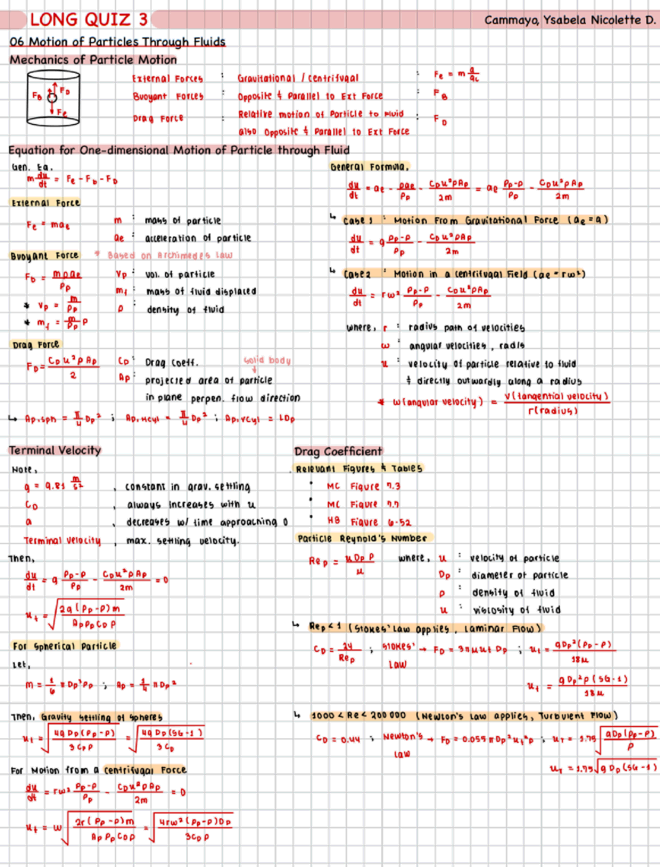 LONG QUIZ 3
Cammayo, Ysabela Nicolette D.
06 Motion of Particles Through Fluids
Mechanics of Particle Motion
External Forces : Gravitational / Centrifugal : Fe = m a/gc
Buoyant Forces : Opposite & Parallel to Ext Force : FB
Drag Force : Relative motion of Particle to Fluid : FD
also Opposite & Parallel to Ext Force
FB FD
Fe
Equation for One-dimensional Motion of Particle through Fluid
Gen. Eq.
m du/dt = Fe - Fb - FD
External Force
Fe = mae
m : mass of particle
ae : acceleration of particle
Buoyant Force * Based on Archimedes Law
Fb = mρae/ρp
* Vp = m/ρp
* mf = m/ρp ρ
Vp : vol. of particle
mf : mass of fluid displaced
ρ : density of fluid
Drag Force
FD = CDu²ρAp/2
CD : Drag Coeff.
solid body
Ap : projected area of particle
in plane perpen. flow direction
↳ Ap,sph = π/4 Dp² ; Ap,Hcyl = π/4 Dp² ; Ap,Vcyl = LDp
General Formula,
du/dt = ae - ρae/ρp - CDu²ρAp/2m = ae ρp-ρ/ρp - CDu²ρAp/2m
↳ Case 1 : Motion From Gravitational Force (ae = g)
du/dt = g ρp-ρ/ρp - CDu²ρAp/2m
↳ Case 2 : Motion in a Centrifugal Field (ae = rω²)
du/dt = rω² ρp-ρ/ρp - CDu²ρAp/2m
where, r : radius path of velocities
ω : angular velocities, rad/s
u : velocity of particle relative to fluid
& directly outwardly along a radius
* ω(angular velocity) = v(tangential velocity)/r(radius)
Terminal Velocity
Note,
g = 9.81 m/s² , constant in grav. settling
CD , always increases with u
a , decreases w/ time approaching 0
Terminal velocity , max. settling velocity.
Then,
du/dt = g ρp-ρ/ρp - CDu²ρAp/2m = 0
ut = √2g(ρp-ρ)m/ApρpCDρ
For Spherical Particle
Let,
m = 1/6 πDp³ρp ; Ap = 1/4 πDp²
Then, Gravity Settling of Spheres
ut = √4gDp(ρp-ρ)/3CDρ = √4gDp(SG-1)/3CD
For Motion from a Centrifugal Force
du/dt = rω² ρp-ρ/ρp - CDu²ρAp/2m = 0
ut = ω √2r(ρp-ρ)m/ApρpCDρ = √4rω²(ρp-ρ)Dp/3CDρ
Drag Coefficient
Relevant Figures & Tables
• MC Figure 7.3
• MC Figure 7.7
• HB Figure 6-52
Particle Reynold's Number
Rep = uDpρ/μ where, u : velocity of particle
Dp : diameter of particle
ρ : density of fluid
μ : viscosity of fluid
↳ Rep < 1 (Stokes' Law applies, Laminar Flow)
CD = 24/Rep ; Stokes' Law → FD = 3πμutDp ; ut = gDp²(ρp-ρ)/18μ
ut = gDp²ρ(SG-1)/18μ
↳ 1000 < Re < 200 000 (Newton's Law applies, Turbulent Flow)
CD = 0.44 ; Newton's Law → FD = 0.055πDp²ut²ρ ; ut = 1.75 √gDp(ρp-ρ)/ρ
ut = 1.75 √gDp(SG-1)